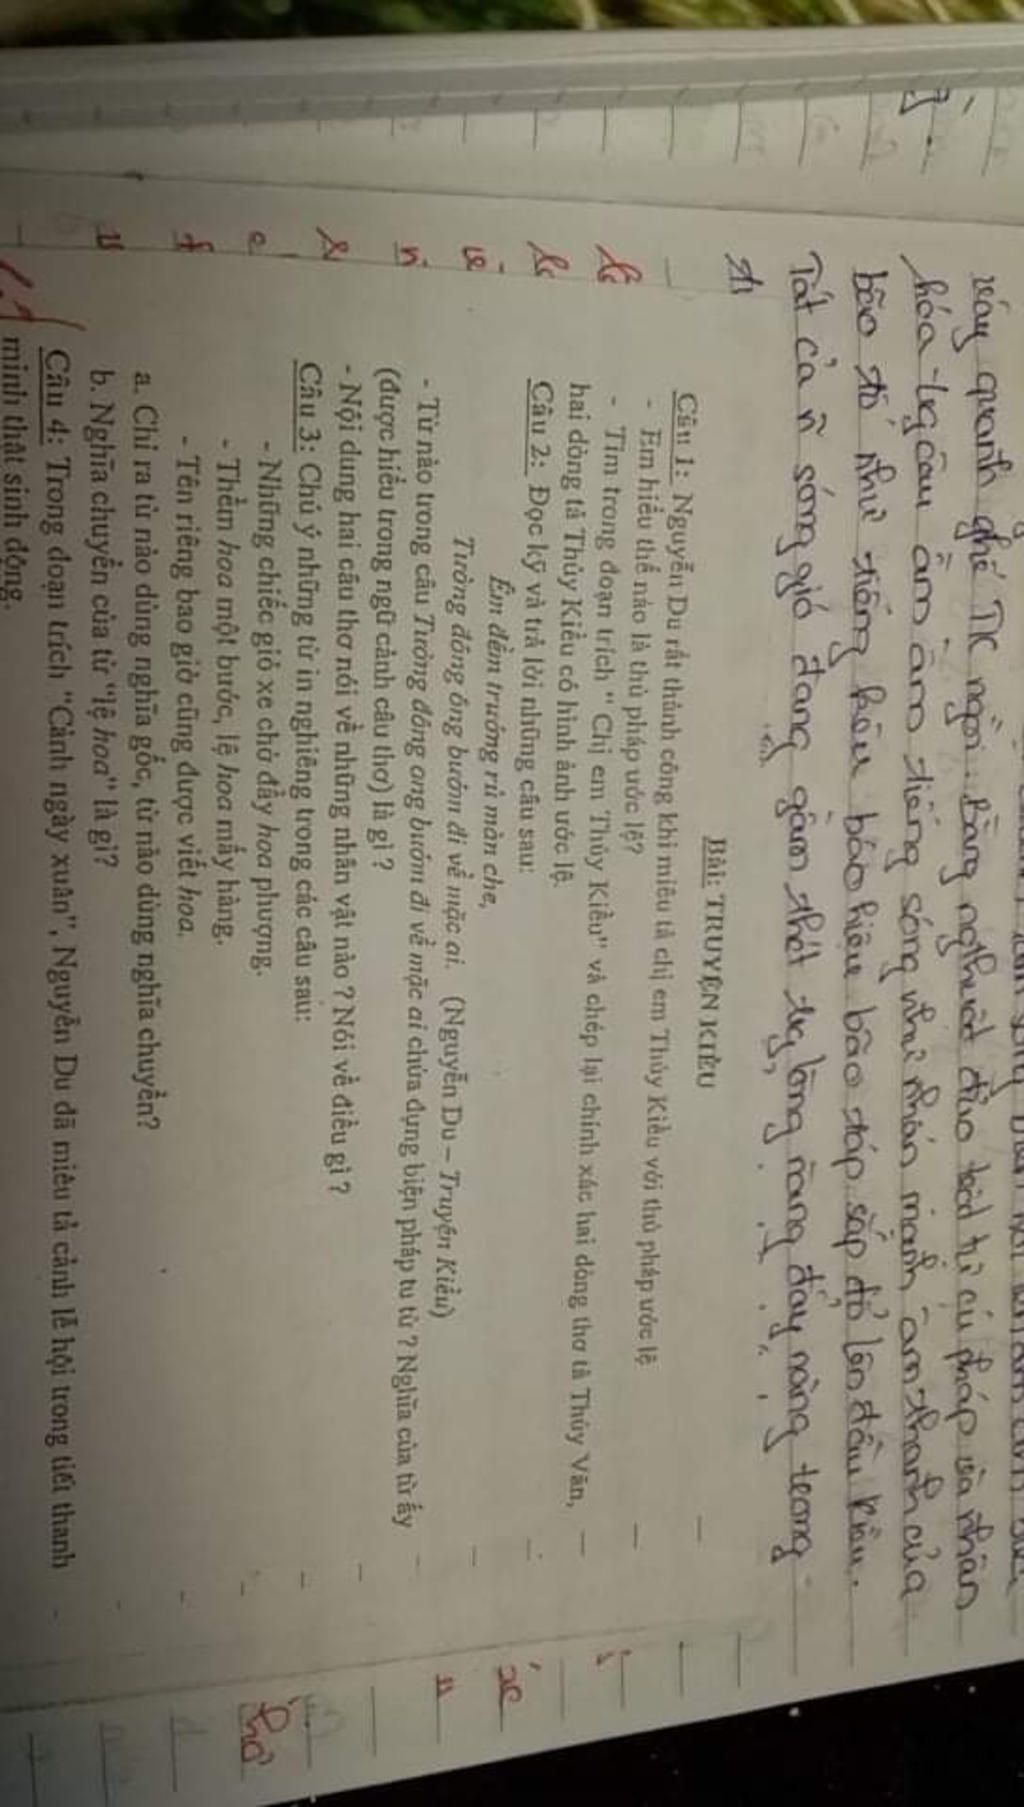 váy quanh ghế TK ngồi. Bằng nghthuật đảo trật tự cú pháp và nhân
hóa - tg câu ầm ầm tiếng sóng như nhấn mạnh âm thanh của
bão tố như tiếng kêu báo hiệu bão táp sắp đổ lên đầu Kiều.
Tất cả n~ sóng gió đang gầm thét tg lòng rang đẩy nàng trong
Bài: TRUYỆN KIỀU
Câu 1: Nguyễn Du rất thành công khi miêu tả chị em Thúy Kiều với thủ pháp ước lệ
- Em hiểu thế nào là thủ pháp ước lệ?
- Tìm trong đoạn trích " Chị em Thúy Kiều" và chép lại chính xác hai dòng thơ tả Thúy Vân,
hai dòng tả Thúy Kiều có hình ảnh ước lệ.
Câu 2: Đọc kỹ và trả lời những câu sau:
Êm đềm trướng rủ màn che,
Tường đông ong bướm đi về mặc ai. (Nguyễn Du – Truyện Kiều)
- Từ nào trong câu Tường đông ong bướm đi về mặc ai chứa đựng biện pháp tu từ ? Nghĩa của từ ấy
(được hiểu trong ngữ cảnh câu thơ) là gì ?
- Nội dung hai câu thơ nói về những nhân vật nào ? Nói về điều gì ?
Câu 3: Chú ý những từ in nghiêng trong các câu sau:
- Những chiếc giỏ xe chở đầy hoa phượng.
- Thềm hoa một bước, lệ hoa mấy hàng.
- Tên riêng bao giờ cũng được viết hoa.
a. Chỉ ra từ nào dùng nghĩa gốc, từ nào dùng nghĩa chuyển?
b. Nghĩa chuyển của từ "lệ hoa" là gì?
Câu 4: Trong đoạn trích "Cảnh ngày xuân", Nguyễn Du đã miêu tả cảnh lễ hội trong tiết thanh
minh thật sinh động.